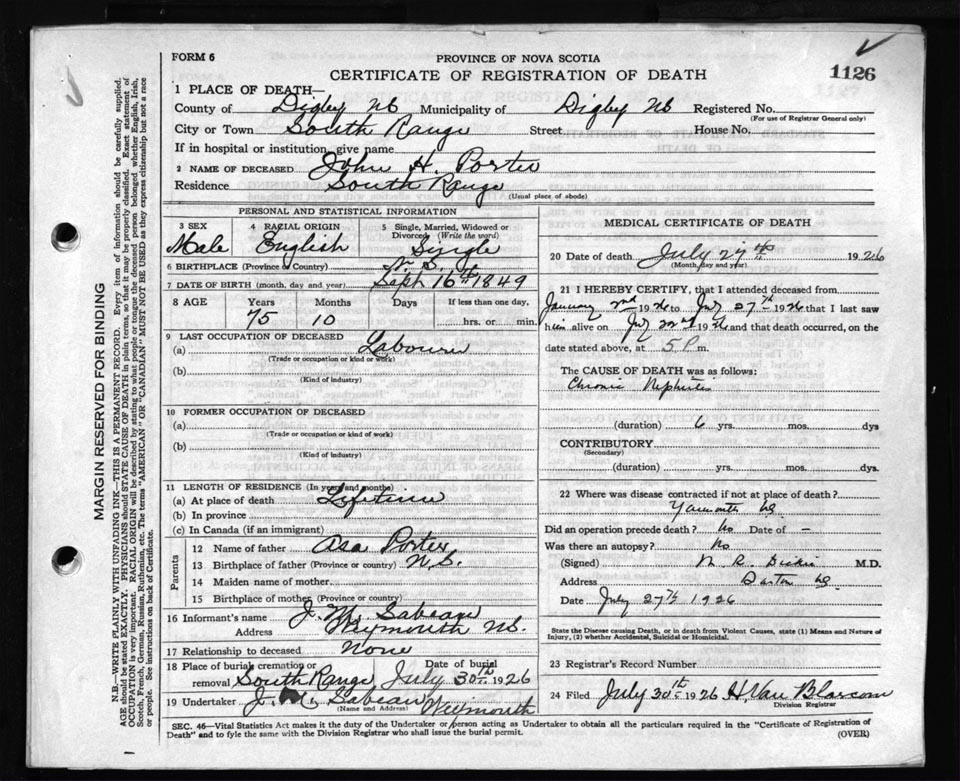 FORM 6
PROVINCE OF NOVA SCOTIA
CERTIFICATE OF REGISTRATION OF DEATH
1126
1 PLACE OF DEATH—
County of Digby NS Municipality of Digby NS Registered No.
(For use of Registrar General only)
City or Town South Range Street House No.
If in hospital or institution, give name
2 NAME OF DECEASED John H. Porter
Residence South Range
(Usual place of abode)
PERSONAL AND STATISTICAL INFORMATION
3 SEX 4 RACIAL ORIGIN 5 Single, Married, Widowed or Divorced (Write the word)
Male English Single
6 BIRTHPLACE (Province or Country) N.S.
7 DATE OF BIRTH (month, day, and year) Sept 16th 1849
8 AGE Years Months Days If less than one day,
75 10 hrs. or min.
9 LAST OCCUPATION OF DECEASED
(a) Labourer
(Trade or occupation or kind of work)
(b)
(Kind of industry)
10 FORMER OCCUPATION OF DECEASED
(a)
(Trade or occupation or kind of work)
(b)
(Kind of industry)
11 LENGTH OF RESIDENCE (In years and months)
(a) At place of death Lifetime
(b) In province
(c) In Canada (if an immigrant)
Parents
12 Name of father Asa Porter
13 Birthplace of father (Province or country) N.S.
14 Maiden name of mother
15 Birthplace of mother (Province or country)
16 Informant's name J. M. Sabean
Address Weymouth NS.
17 Relationship to deceased None
18 Place of burial, cremation or removal South Range Date of burial July 30th 1926
19 Undertaker J. M. Sabean Weymouth
(Name and Address)
MEDICAL CERTIFICATE OF DEATH
20 Date of death July 27th 1926
(Month, day and year)
21 I HEREBY CERTIFY, that I attended deceased from
January 2nd 1926 to July 27th 1926 that I last saw
him alive on July 22nd 1926 and that death occurred, on the
date stated above, at 5 P m.
The CAUSE OF DEATH was as follows:
Chronic Nephritis
(duration) 6 yrs. mos. dys
CONTRIBUTORY
(Secondary)
(duration) yrs. mos. dys.
22 Where was disease contracted if not at place of death?
Did an operation precede death? No Date of —
Was there an autopsy? No
(Signed) M.D.
Address Barton
Date July 27th 1926
State the Disease causing Death, or in death from Violent Causes, state (1) Means and Nature of
Injury, (2) whether Accidental, Suicidal or Homicidal.
23 Registrar's Record Number
24 Filed July 30th 1926 H. Van Blarcom
Division Registrar
SEC. 46—Vital Statistics Act makes it the duty of the Undertaker or person acting as Undertaker to obtain all the particulars required in the "Certificate of Registration of
Death" and to fyle the same with the Division Registrar who shall issue the burial permit.
(OVER)
MARGIN RESERVED FOR BINDING
N.B.—WRITE PLAINLY WITH UNFADING INK—THIS IS A PERMANENT RECORD. Every item of information should be carefully supplied.
AGE should be stated EXACTLY. PHYSICIANS should STATE CAUSE OF DEATH in plain terms, so that it may be properly classified. Exact statement of
OCCUPATION is very important. RACIAL ORIGIN will be described by stating to what people or tongue the deceased person belonged whether English, Irish,
Scotch, French, German, Russian, Ruthenian, etc. The terms "AMERICAN" OR "CANADIAN" MUST NOT BE USED as they express citizenship but not a race
or people. See instructions on back of Certificate.